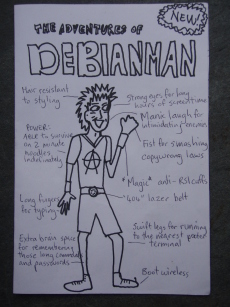 NEW!
THE ADVENTURES OF
DEBIANMAN
Hair resistant
to styling
Strong eyes for long
hours of screentime
Manic laugh for
intimidating enemies
POWER:
ABLE to survive
on 2 minute
noodles
indefinately
Fist for smashing
copywrong laws
"Magic" anti-RSI cuffs
Long fingers
for typing
404" lazer belt
Extra brain space
for remembering
those long commands
and passwords
Swift legs for running
to the nearest
terminal
Boot wireless